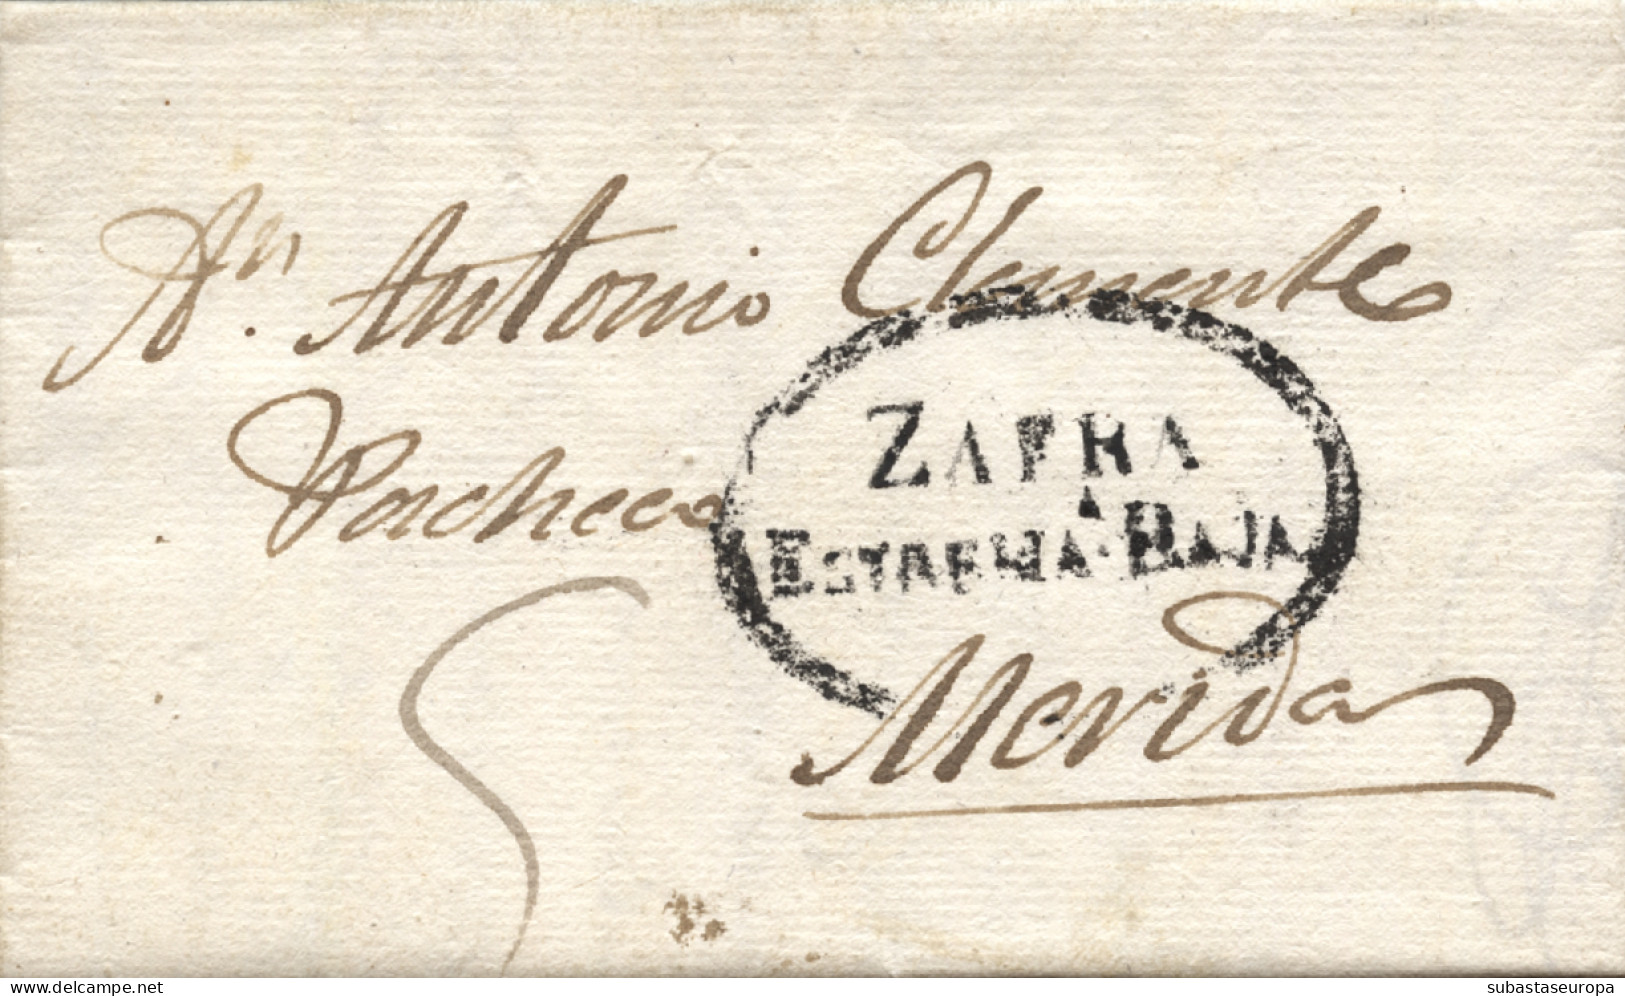 A Dn. Antonio Clemente
Pacheco
ZAFRA
ESTREMA. BAJA
A
Merida
5
www.delcampe.net
subastaseuropa